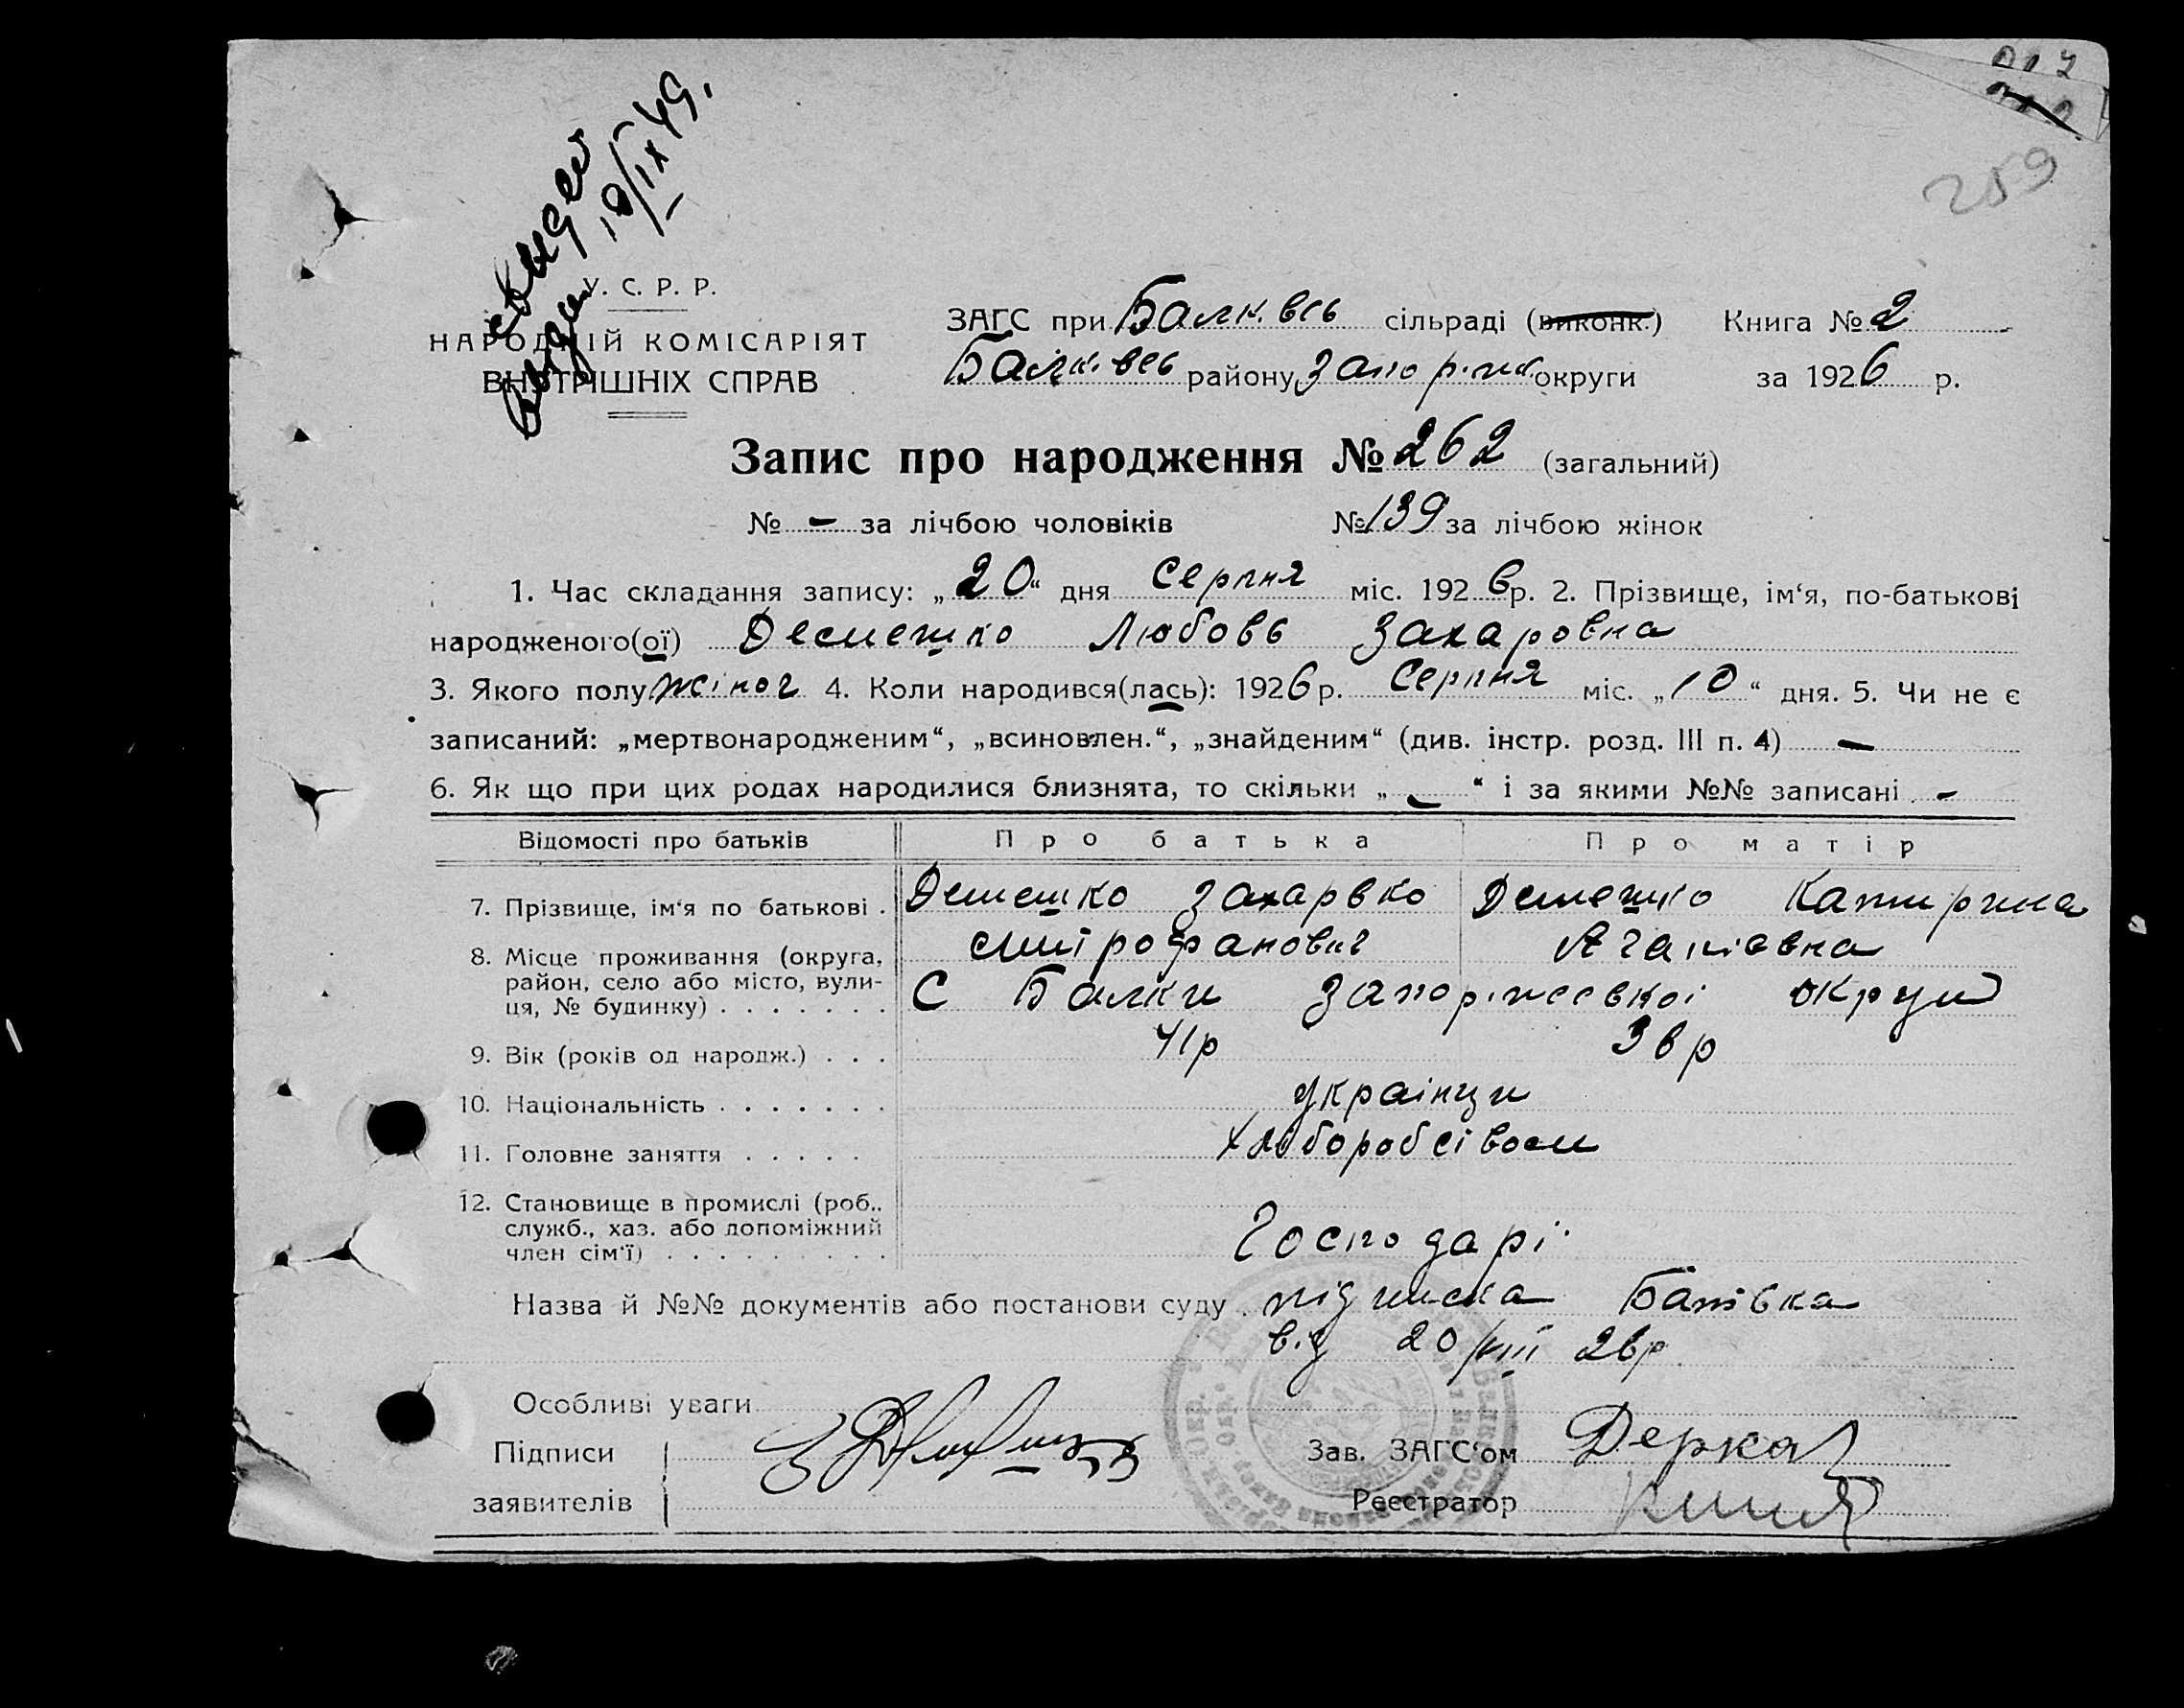 259
свидет
18/IX 49.
У. С. Р. Р.
НАРОДНІЙ КОМІСАРІЯТ
ВНУТРІШНІХ СПРАВ
ЗАГС при Балківсь сільраді (виконк.) Книга № 2
Балківсь району Запоріж округи за 1926 р.
Запис про народження № 262 (загальний)
№ - за лічбою чоловіків № 139 за лічбою жінок
1. Час складання запису: „20“ дня Серпня міс. 1926 р. 2. Прізвище, ім‘я, по-батькові
народженого(ої) Демешко Любовь Захаровна
3. Якого полу жіноч 4. Коли народився(лась): 1926 р. Серпня міс. „10“ дня. 5. Чи не є
записаний: „мертвонародженим“, „всиновлен.“, „знайденим“ (див. інстр. розд. III п. 4) -
6. Як що при цих родах народилися близнята, то скільки „-“ і за якими №№ записані -
Відомості про батьків Про батька Про матір
7. Прізвище, ім‘я по батькові . Демешко Захарко Демешко Катирина
Митрофанович Агапіовна
8. Місце проживання (округа,
район, село або місто, вули-
ця, № будинку) . . . . . . . С Балки Запоріжсевкої округи
9. Вік (років од народж.) . . . 41р 36р
10. Національність . . . . . . . Українци
11. Головне заняття . . . . . Хліборобсівом
12. Становище в промислі (роб.,
служб., хаз. або допоміжний
член сім‘ї) . . . . . . . . . Господарі
Назва й №№ документів або постанови суду . підписка Батівка
від 20/VIII 26р.
Особливі уваги
Підписи
заявителів
Зав. ЗАГС‘ом Деркач
Реєстратор